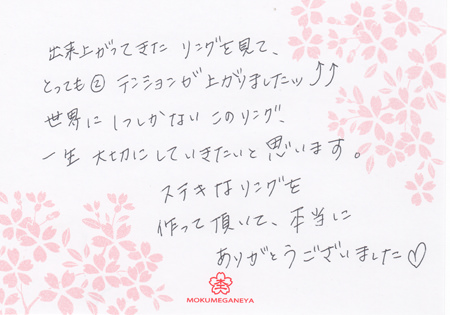 出来上がってきた リングを見て、
とっても② テンションが上がりましたッ⤴⤴
世界に 1つしかない このリング、
一生 大切にしていきたいと思います。
ステキなリングを
作って頂いて、本当に
ありがとうございました♡
MOKUMEGANEYA